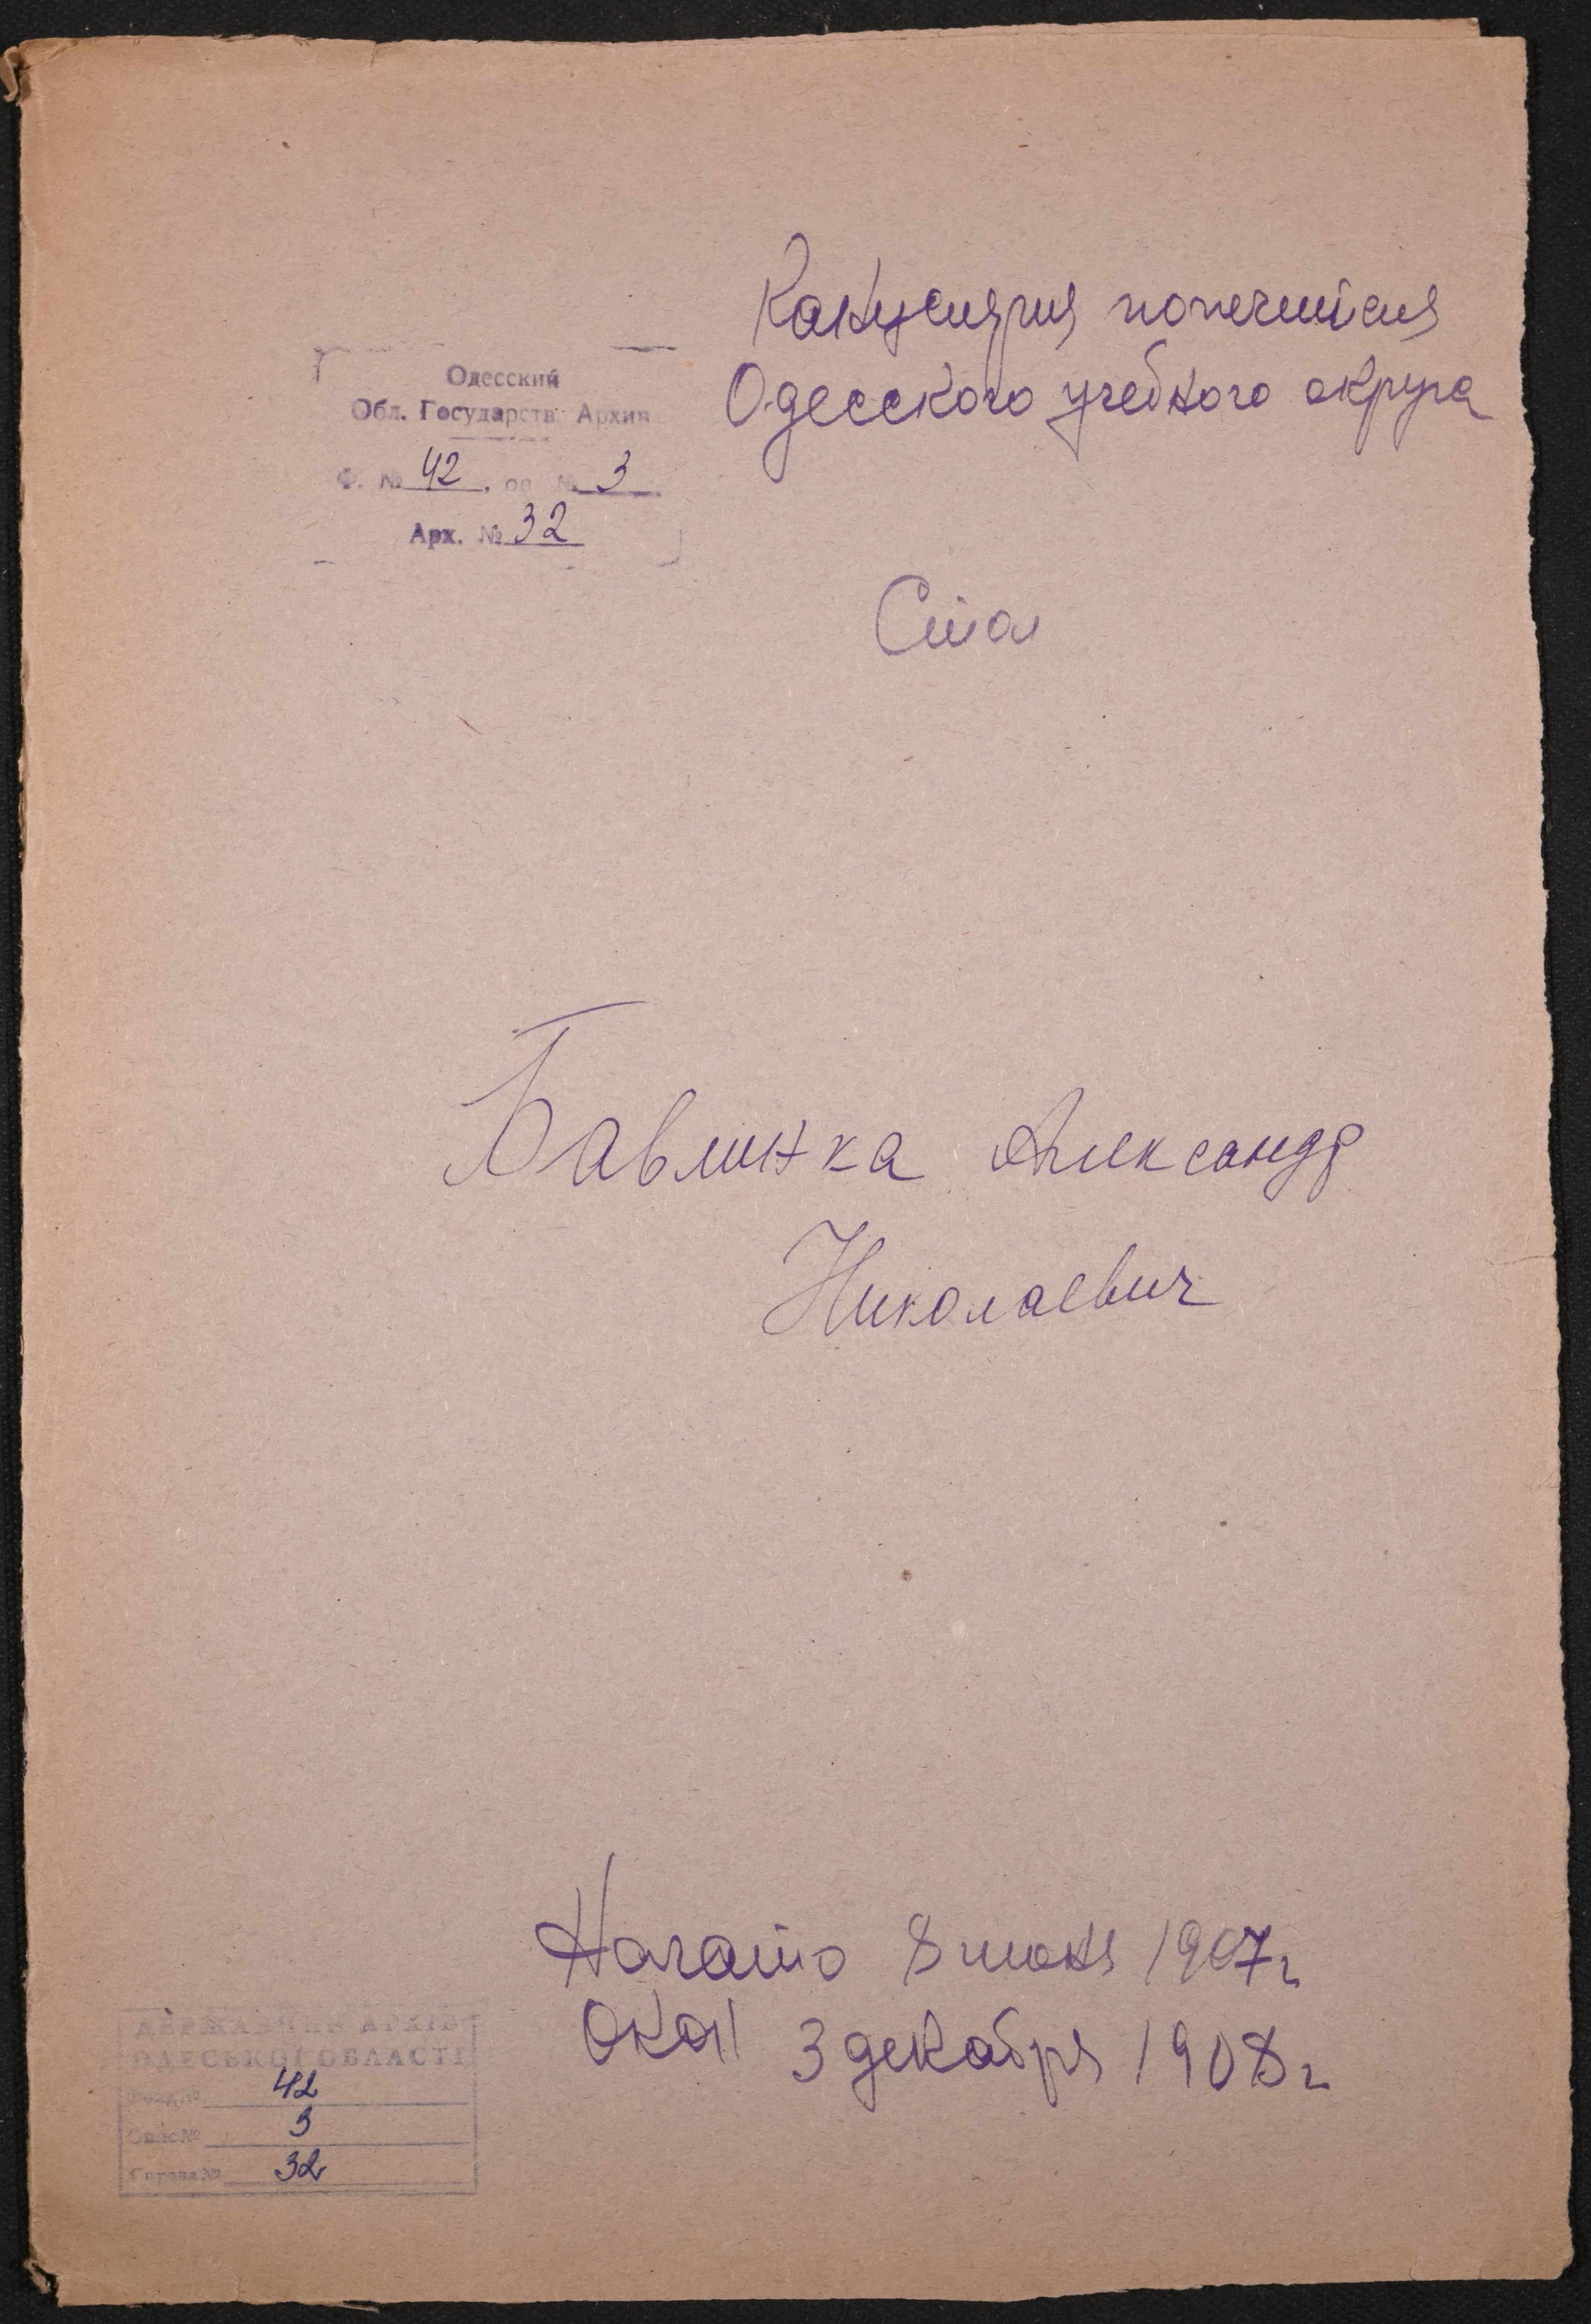 Канцелярия попечителя
Одесского учебного округа
Одесский
Обл. Государств. Архив
Ф. № 42, оп. № 3
Арх. № 32
Стол
Бавлинка Александр
Николаевич
Начато 8 июня 1907 г
Окон 3 декабря 1908 г
ДЕРЖАВНИЙ АРХІВ
ОДЕСЬКОЇ ОБЛАСТІ
Фонд № 42
Опис № 3
Справа № 32